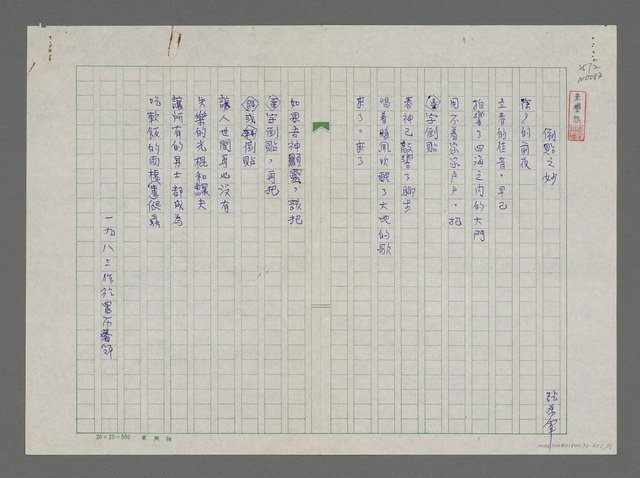 倒貼之妙
除夕的前夜
立春的佳音，早已
拍響了四海之内的大門
用不着家家戶戶，把
字倒貼
春神已敲響了腳步
唱着順風吹醒了大地的歌
來了，來了
如果吾神顯靈，該把
字倒貼，再把
或
倒貼
讓人世間再也沒有
失樂的光棍和鰥夫
讓所有的男士都成為
吃軟飯的雨樓書
蟲
一九八三作於
20×25=500